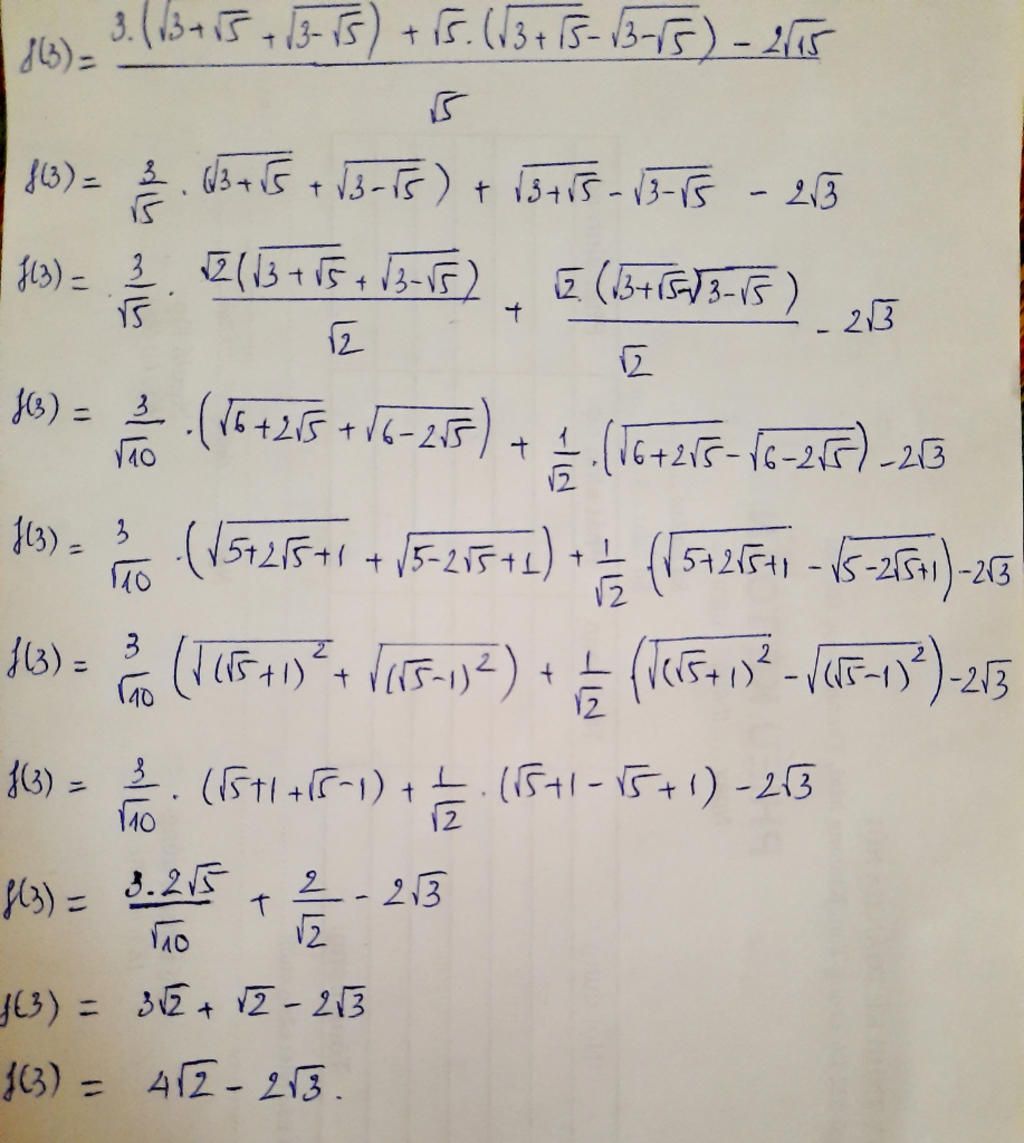 f(3) = \frac{3.(\sqrt{3+\sqrt{5}} + \sqrt{3-\sqrt{5}}) + \sqrt{5}.(\sqrt{3+\sqrt{5}} - \sqrt{3-\sqrt{5}}) - 2\sqrt{15}}{\sqrt{5}}
f(3) = \frac{3}{\sqrt{5}} . (\sqrt{3+\sqrt{5}} + \sqrt{3-\sqrt{5}}) + \sqrt{3+\sqrt{5}} - \sqrt{3-\sqrt{5}} - 2\sqrt{3}
f(3) = \frac{3}{\sqrt{5}} . \frac{\sqrt{2}(\sqrt{3+\sqrt{5}} + \sqrt{3-\sqrt{5}})}{\sqrt{2}} + \frac{\sqrt{2}.(\sqrt{3+\sqrt{5}} - \sqrt{3-\sqrt{5}})}{\sqrt{2}} - 2\sqrt{3}
f(3) = \frac{3}{\sqrt{10}} .(\sqrt{6+2\sqrt{5}} + \sqrt{6-2\sqrt{5}}) + \frac{1}{\sqrt{2}} .(\sqrt{6+2\sqrt{5}} - \sqrt{6-2\sqrt{5}}) - 2\sqrt{3}
f(3) = \frac{3}{\sqrt{10}} .(\sqrt{5+2\sqrt{5}+1} + \sqrt{5-2\sqrt{5}+1}) + \frac{1}{\sqrt{2}} (\sqrt{5+2\sqrt{5}+1} - \sqrt{5-2\sqrt{5}+1}) - 2\sqrt{3}
f(3) = \frac{3}{\sqrt{10}} (\sqrt{(\sqrt{5}+1)^2} + \sqrt{(\sqrt{5}-1)^2}) + \frac{1}{\sqrt{2}} (\sqrt{(\sqrt{5}+1)^2} - \sqrt{(\sqrt{5}-1)^2}) - 2\sqrt{3}
f(3) = \frac{3}{\sqrt{10}} . (\sqrt{5}+1+\sqrt{5}-1) + \frac{1}{\sqrt{2}} . (\sqrt{5}+1-\sqrt{5}+1) - 2\sqrt{3}
f(3) = \frac{3.2\sqrt{5}}{\sqrt{10}} + \frac{2}{\sqrt{2}} - 2\sqrt{3}
f(3) = 3\sqrt{2} + \sqrt{2} - 2\sqrt{3}
f(3) = 4\sqrt{2} - 2\sqrt{3}.